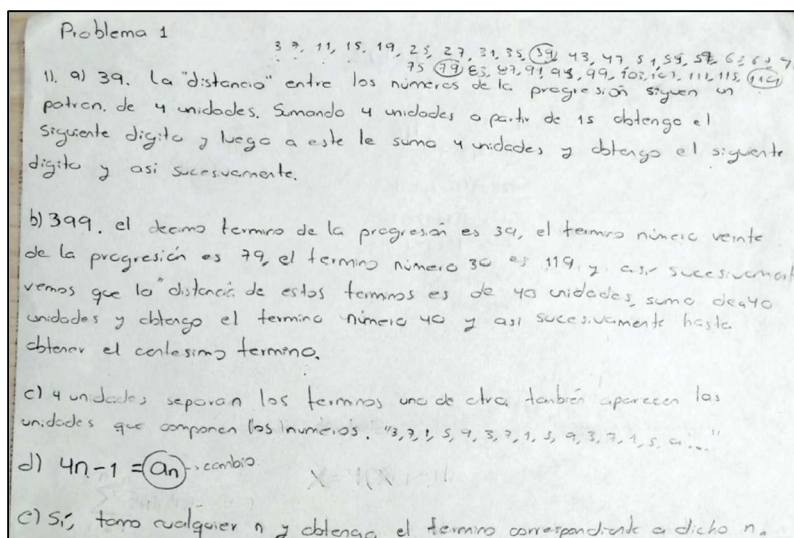 Problema 1
3 7, 11, 15, 19, 23, 27, 31, 35, 39, 43, 47 51, 55, 59, 63 67,
75 79 83, 87, 91, 95, 99, 103, 107, 111, 115, 119
1). a) 39. La "distancia" entre los números de la progresión siguen un
patron. de 4 unidades. Sumando 4 unidades a partir de 15 obtengo el
siguiente digito y luego a este le sumo 4 unidades y obtengo el siguiente
digito y asi sucesivamente.
b) 399. el decimo termino de la progresión es 39, el termino número veinte
de la progresión es 79, el termino número 30 es 119. y asi sucesivament
vemos que la "distancia de estos terminos es de 40 unidades, sumo de a 40
unidades y obtengo el termino número 40 y asi sucesivamente hasta
obtener el centesimo termino.
c) 4 unidades separan los terminos uno de otro también aparecen las
unidades que componen los numeros. "3, 7, 1, 5, 9, 3, 7, 1, 5, 9, 3, 7, 1, 5, 9..."
d) 4n - 1 = an cambio
e) Sí, tomo cualquier n y obtengo el termino correspondiente a dicho n.